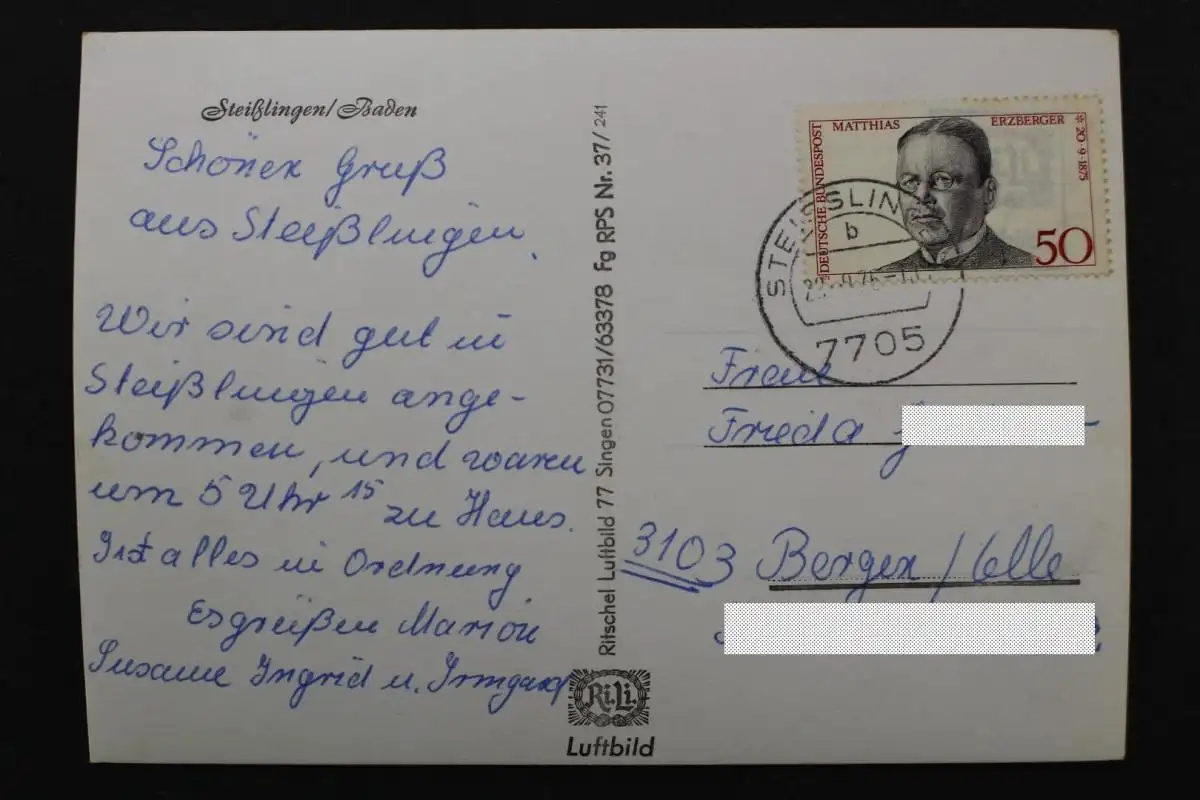 Steißlingen/Baden
Schöner Gruß
aus Steißlingen.
Wir sind gut in
Steißlingen ange-
kommen, und waren
um 5 Uhr 15 zu Haus.
Ist alles in Ordnung
Es grüßen Marion
Susanne Ingrid u. Irmgard
Ritschel Luftbild 77 Singen 07731/63378 Fg RPS Nr. 37/241
Ri.Li.
Luftbild
MATTHIAS ERZBERGER
* 20·9·1875
DEUTSCHE BUNDESPOST
50
STEISSLIN
b
7705
Frau
Frieda
3103 Bergen / Celle